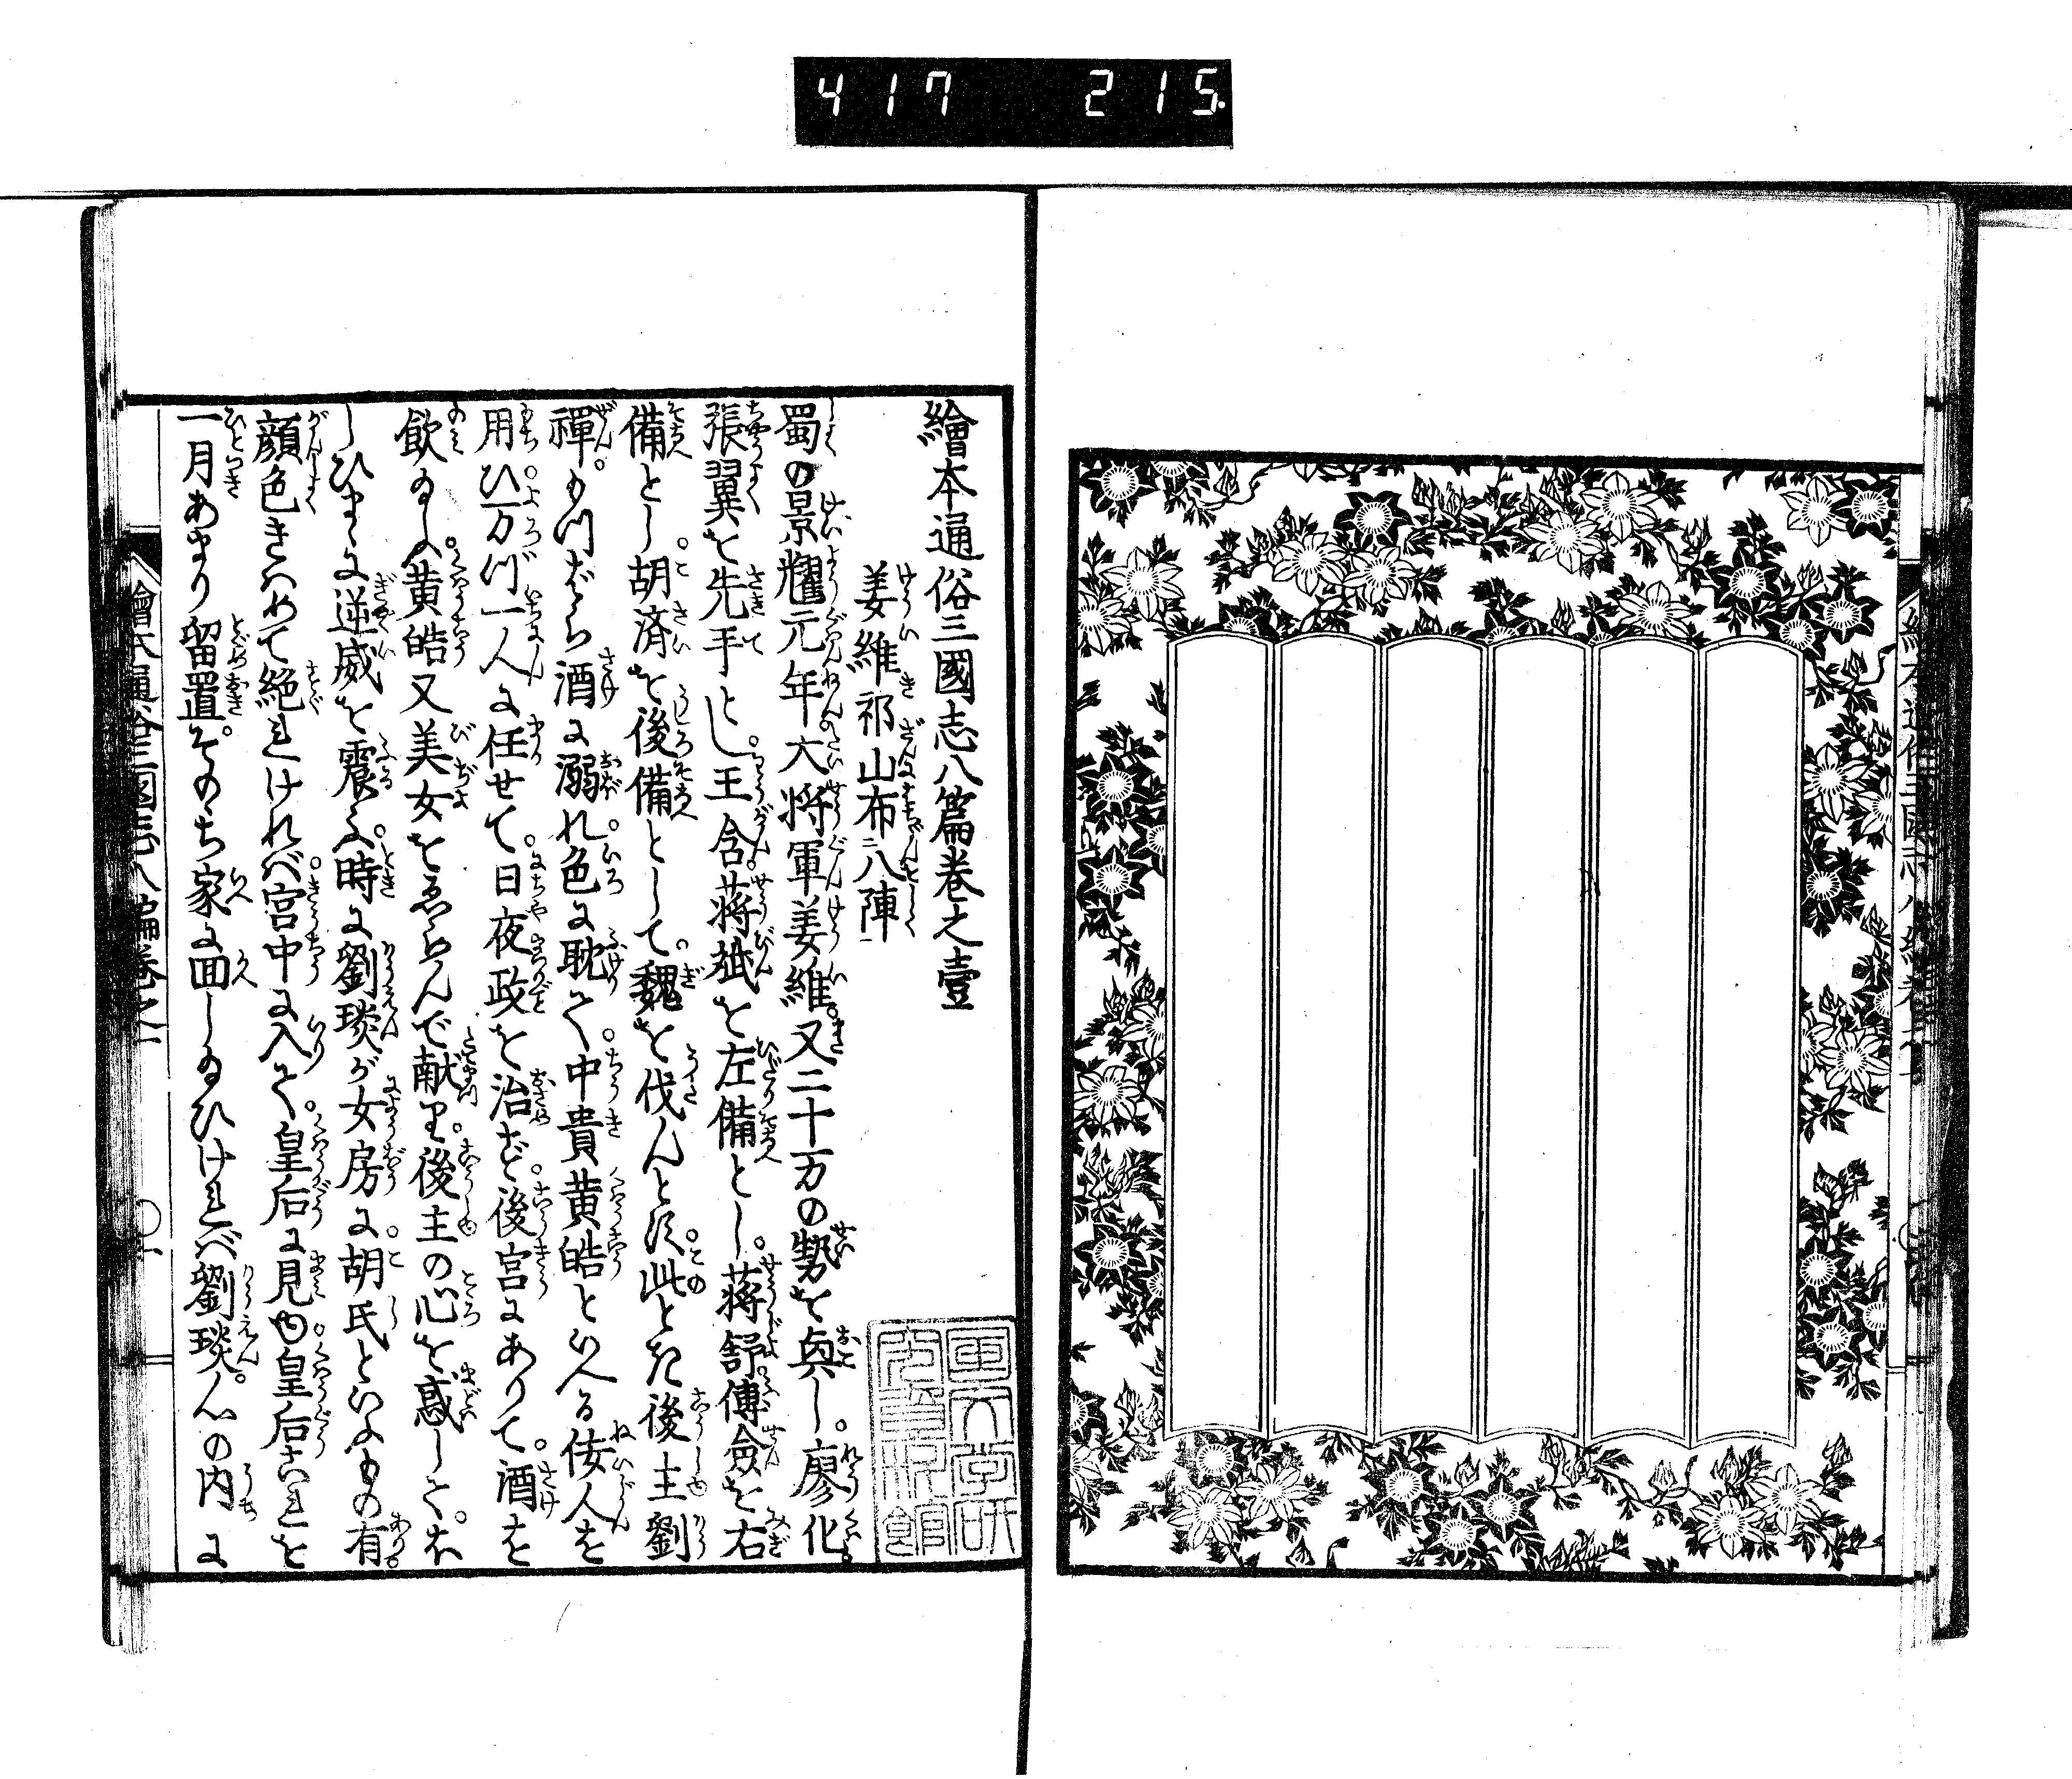 417 215
繪本通俗三國志八篇巻之壹
姜維祁山布二八陣一
蜀の景耀元年大将軍姜維又二十万の勢を興し。廖化
張翼を先手とし。王含。蒋斌を左備とし。蒋舒傅僉を右
備とし。胡済を後備として。魏を伐んとす。此とき後主劉
禪。もつぱら酒に溺れ。色に耽て。中貴黄皓といへる佞人を
用ひ。万づ一人に任せて。日夜政を治ず。後宮にありて。酒を
飲ゐる。黄皓又美女をゑらんで献り。後主の心を惑して。お
しひまゝに逆威を震ふ。時に劉琰が女房に。胡氏といふもの有。
顔色きはめて絶れければ。宮中に入て。皇后に見ゆ。皇后これを
一月あまり留置。そのゝち家に回しゐひければ劉琰。心の内に
繪本通俗三國志八編巻之一